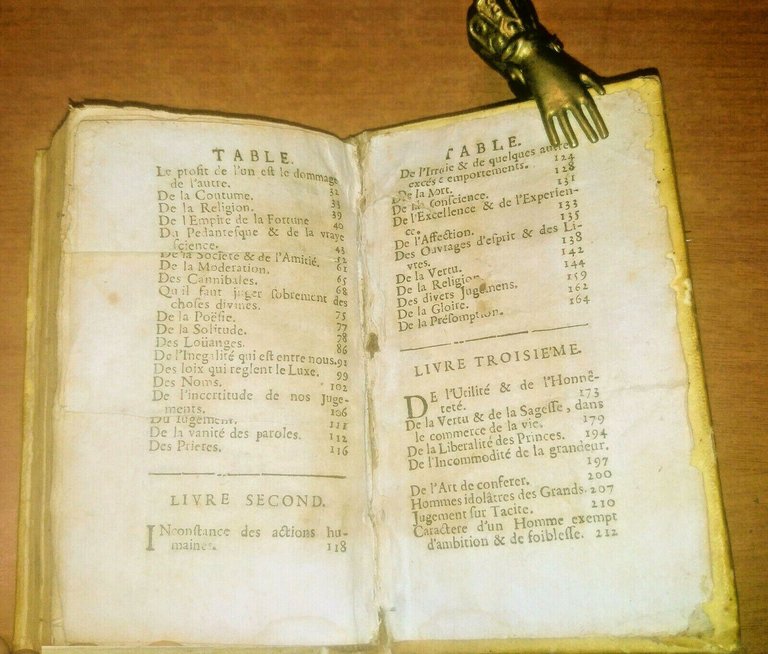 TABLE.
Le profit de l'un est le dommage
de l'autre. 32
De la Coutume. 33
De la Religion. 39
De l'Empire de la Fortune 40
Du Pedantesque & de la vraye
science. 43
De la Societé & de l'Amitié. 52
De la Moderation. 61
Des Cannibales. 65
Qu'il faut juger sobrement des 68
choses divines.
De la Poësie. 75
De la Solitude. 77
Des Loüanges. 78
De l'Inegalité qui est entre nous. 86
Des loix qui reglent le Luxe. 91
Des Noms. 99
De l'incertitude de nos Juge- 102
mens. 106
Du Jugement. 111
De la vanité des paroles. 112
Des Prieres. 116
LIVRE SECOND.
INconstance des actions hu-
maines. 118
TABLE.
De l'Irroie & de quelques autres
excés & emportemens. 124
De la Mort. 128
De la Conscience. 131
De l'Excellence & de l'Experien-
ce. 133
De l'Affection. 135
Des Ouvrages d'esprit & des Li-
vres. 138
De la Vertu. 142
De la Religion. 144
Des divers Jugemens. 159
De la Gloire. 162
De la Présomption. 164
LIVRE TROISIE'ME.
DE l'Utilité & de l'Honnê-
teté. 173
De la Vertu & de la Sagesse, dans
le commerce de la vie. 179
De la Liberalité des Princes. 194
De l'Incommodité de la grandeur.
197
De l'Art de conferer. 200
Hommes idolâtres des Grands. 207
Jugement sur Tacite. 210
Caractere d'un Homme exempt
d'ambition & de foiblesse. 212